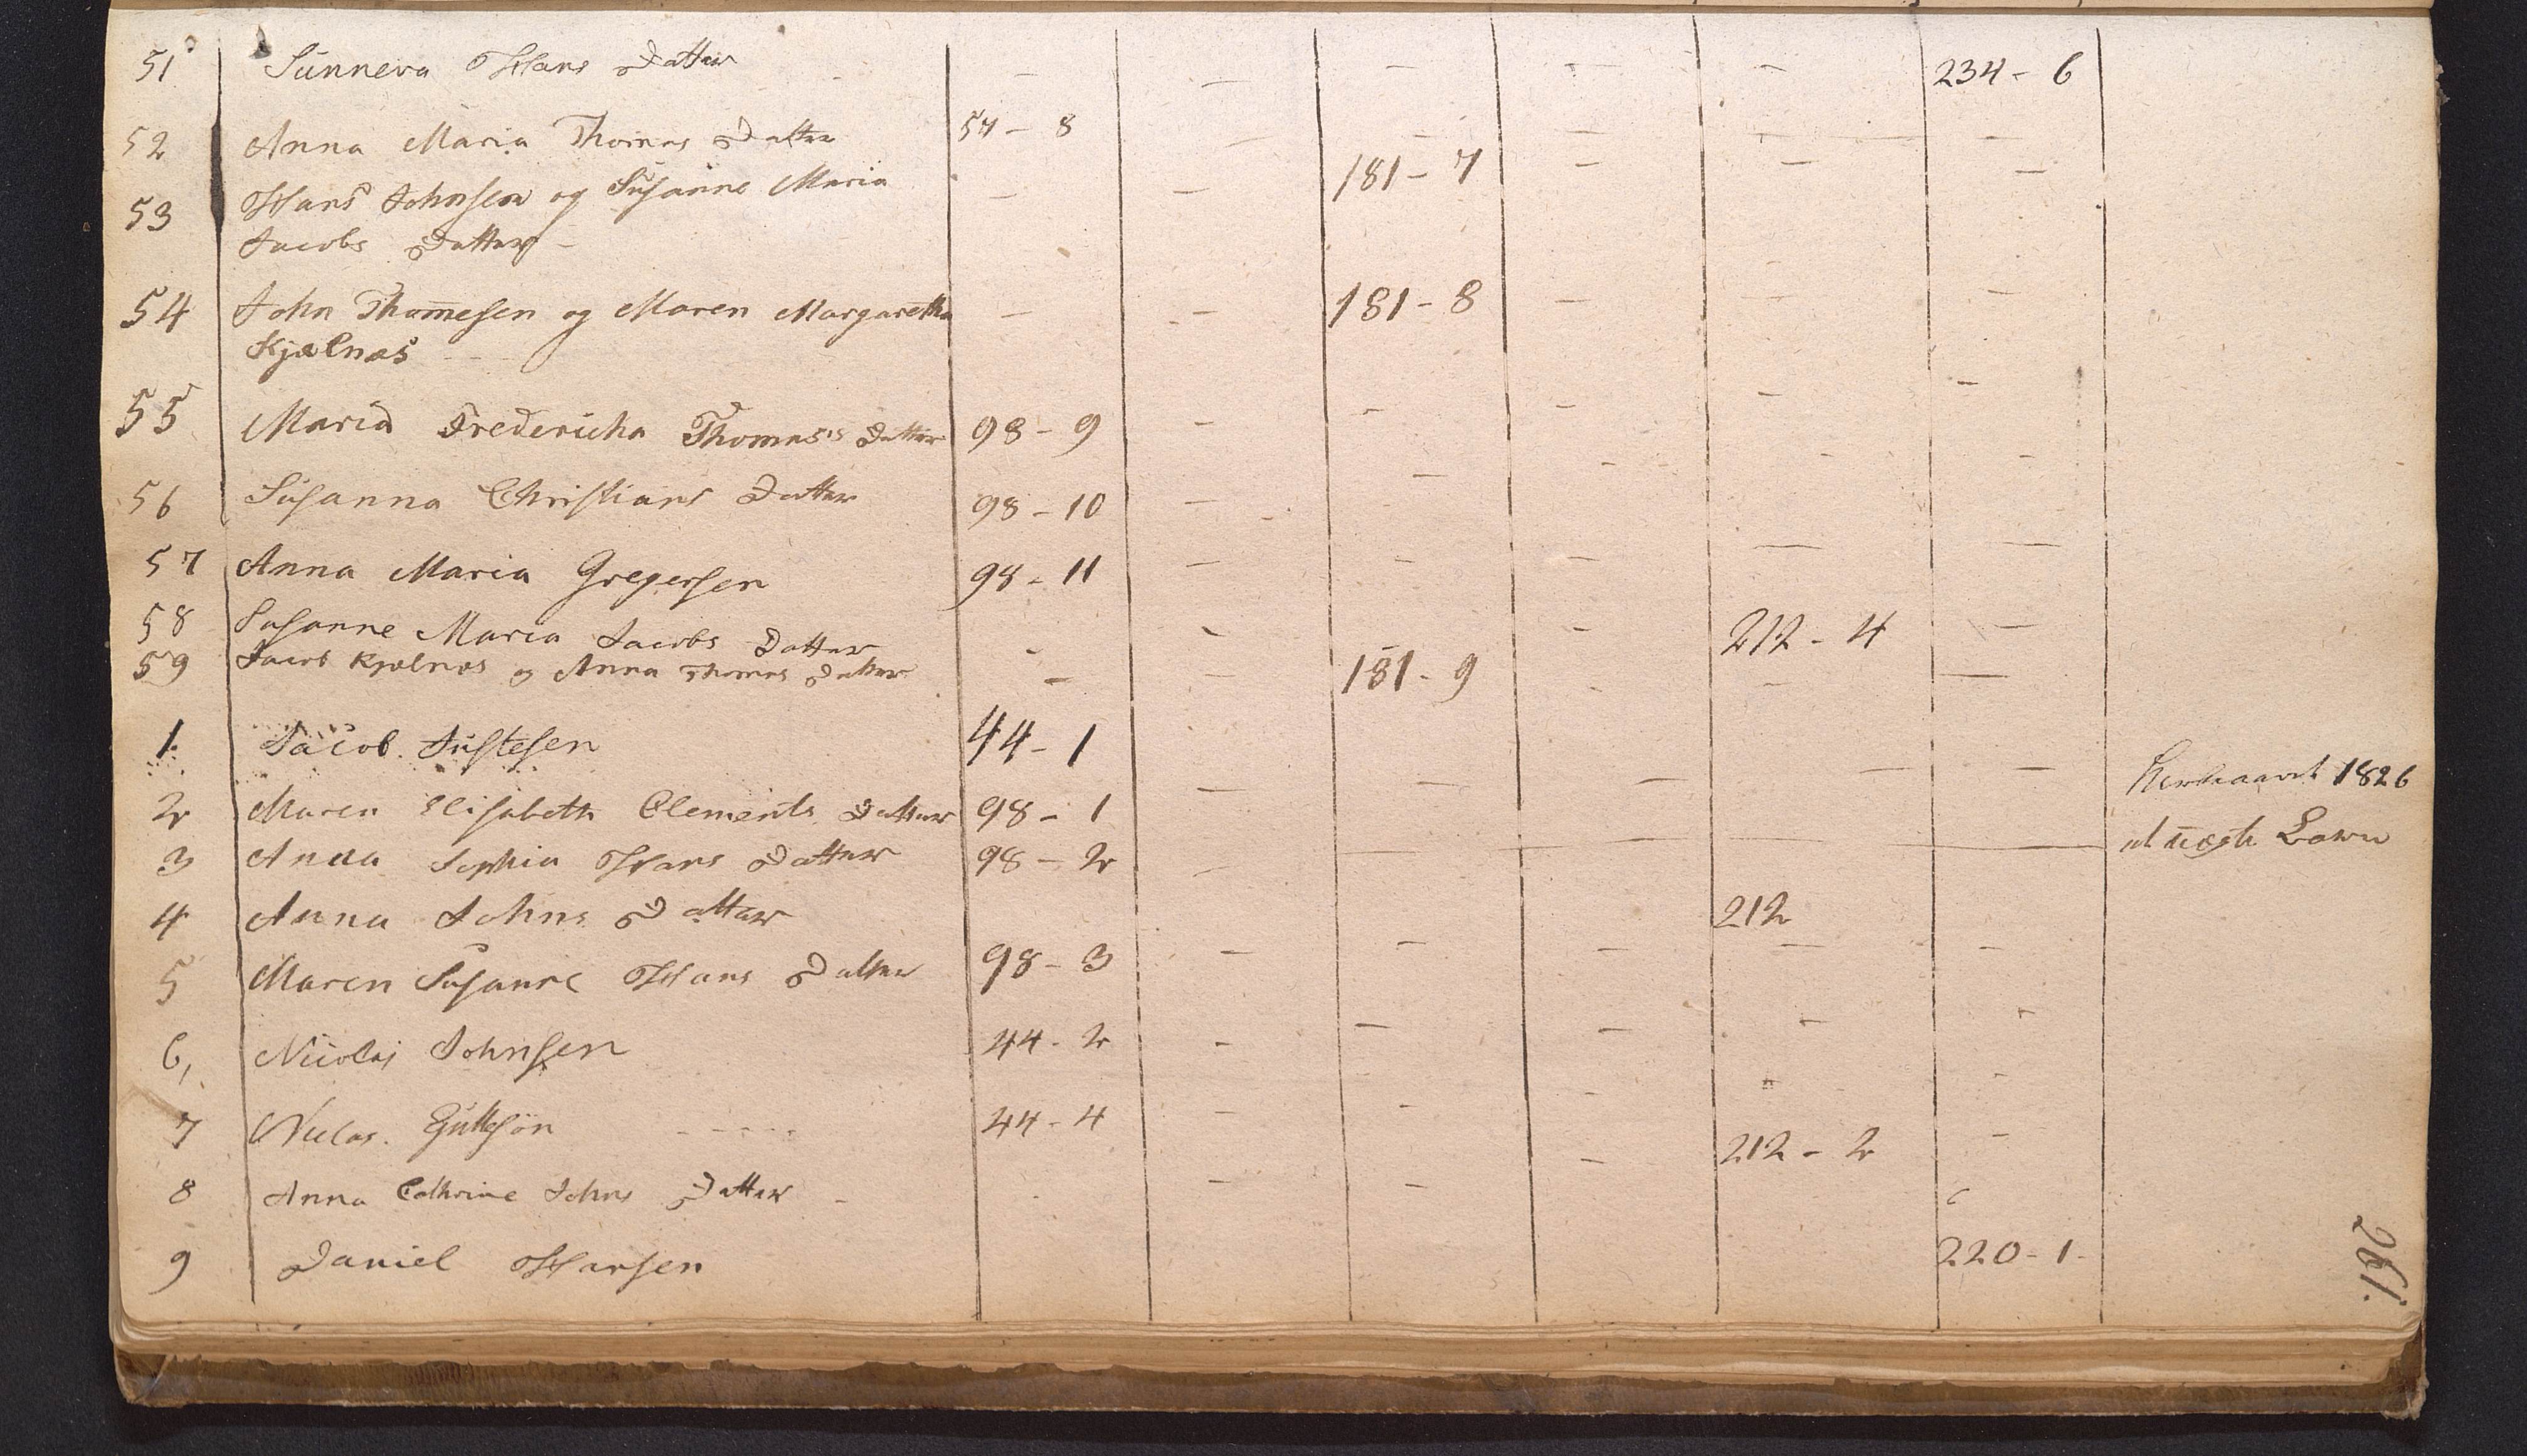 51 Sunneva Hans Datter - - - - - - 234 - 6
52 Anna Maria Thomas Datter 54 - 8 - - - - -
53 Hans Johnsen og Susanne Maria - - 181 - 7 - - -
Jacobs Datter -
54 John Thomesen og Maren Margaretha - - 181 - 8 - - -
Kjælnæs - -
55 Maria Fredericha Thomas's Datter 98 - 9 - - - - -
56 Susanna Christians Datter 98 - 10 - - - - -
57 Anna Maria Gregersen 98 - 11 - - - - -
58 Susanne Maria Jacobs Datter - - - - 212 - 4 -
59 Jacob Kjælnæs og Anna Thomas Datter - - 181 - 9 - - -
1. Jacob Justesen 44 - 1
2 Maren Elisabeth Clements Datter 98 - 1 - - - - -
1826
3 Anna Sophia Hans Datter 98 - 2 - - - - -
4 Anna Johns Datter 212
5 Maren Susanne Hans Datter 98 - 3 - - - - -
6, Nicolai Johnsen 44 - 2 - - - - -
7 Niclas. 44 - 4 - - - - -
8 Anna Cathrine Johns Datter - - - - 212 - 2 -
9 Daniel Hansen 220 - 1 -
261.